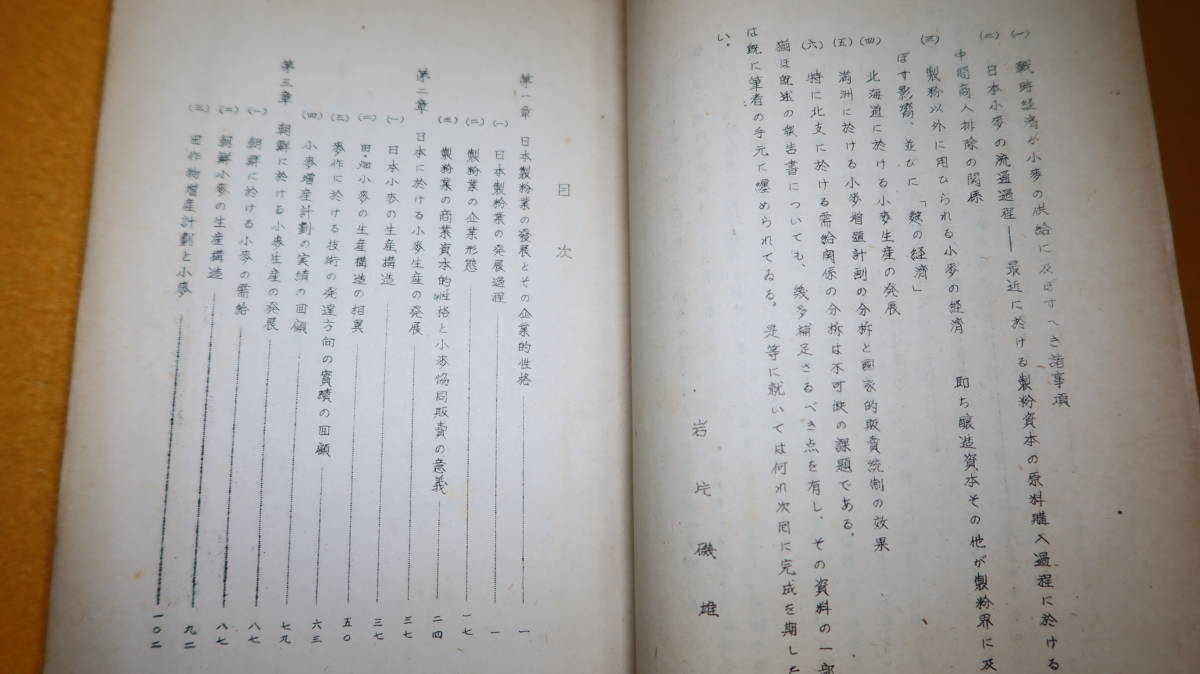 (一) 戰時経済が小麥の供給に及ぼすべき諸事項
(二) 日本小麥の流通過程——最近に於ける製粉資本の原料購入過程に於ける
中間商人排除の関係
(三) 製粉以外に用ひられる小麥の経済 即ち醸造資本その他が製粉界に及
ぼす影響、並びに「麬の経済」
(四) 北海道に於ける小麥生産の発展
(五) 満洲に於ける小麥増殖計劃の分析と國家的販賣統制の效果
(六) 特に北支に於ける需給関係の分析は不可欠の課題である。
猶ほ既述の報告書についても、幾多補足さるべき点を有し、その資料の一部
は既に筆者の手元に纏められてゐる。是等に就いては何れ次囘に完成を期した
い。
岩片磯雄
目次
第一章 日本製粉業の發展とその企業的性格 一
(一) 日本製粉業の発展過程 一
(二) 製粉業の企業形態 一七
(三) 製粉業の商業資本的性格と小麥協同販賣の意義 二四
第二章 日本に於ける小麥生産の発展 三七
(一) 日本小麥の生産構造 三七
(二) 田・畑小麥の生産構造の相異 五〇
(三) 麥作に於ける技術の発達方向の實績の回顧 六三
(四) 小麥増産計劃の実績の回顧 七九
第三章 朝鮮に於ける小麥生産の発展 八七
(一) 朝鮮に於ける小麥の需給 八七
(二) 朝鮮小麥の生産構造 九二
(三) 田作物増産計劃と小麥 一〇二